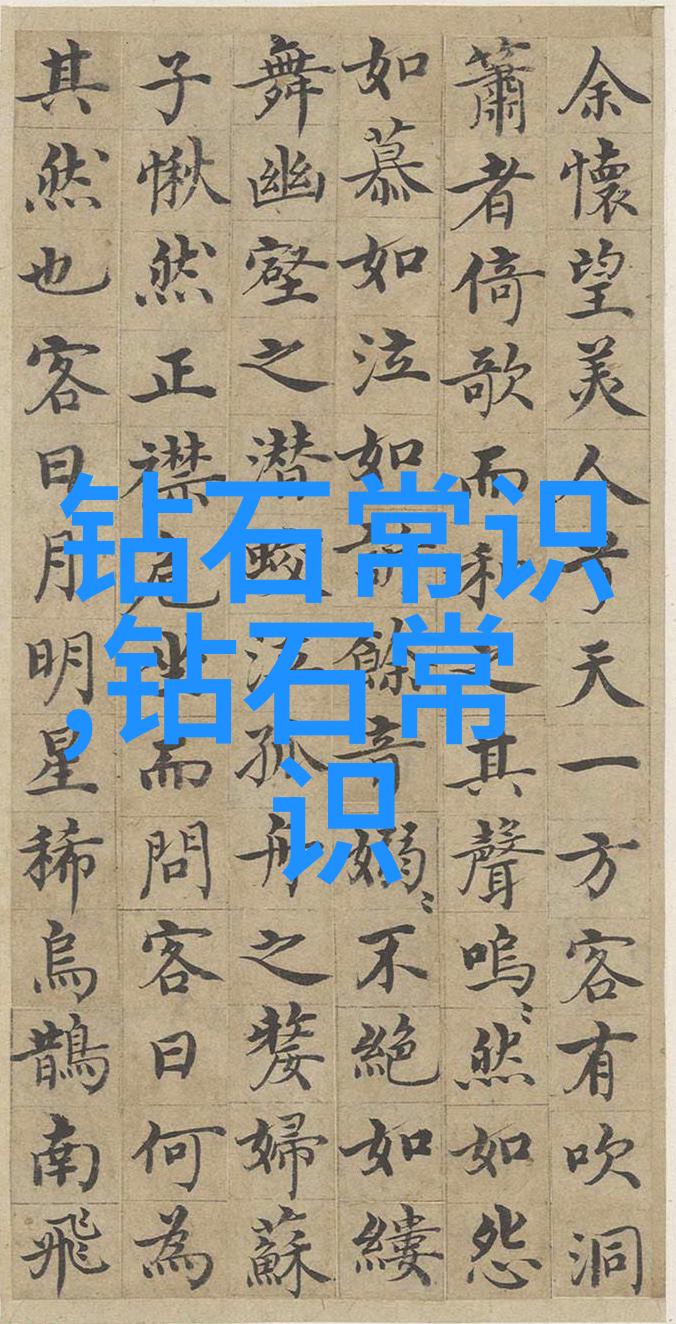 余懷望美人兮天一方客有吹洞
簫者倚歌而和之其聲嗚〻然如怨
如慕如泣如訴餘音嫋〻不絶如縷
舞幽壑之潜蛟泣孤舟之嫠婦蘇
子愀然正襟危坐而問客曰何為
其然也客曰月明星稀烏鵲南飛
钻石常识
,钻石常
识